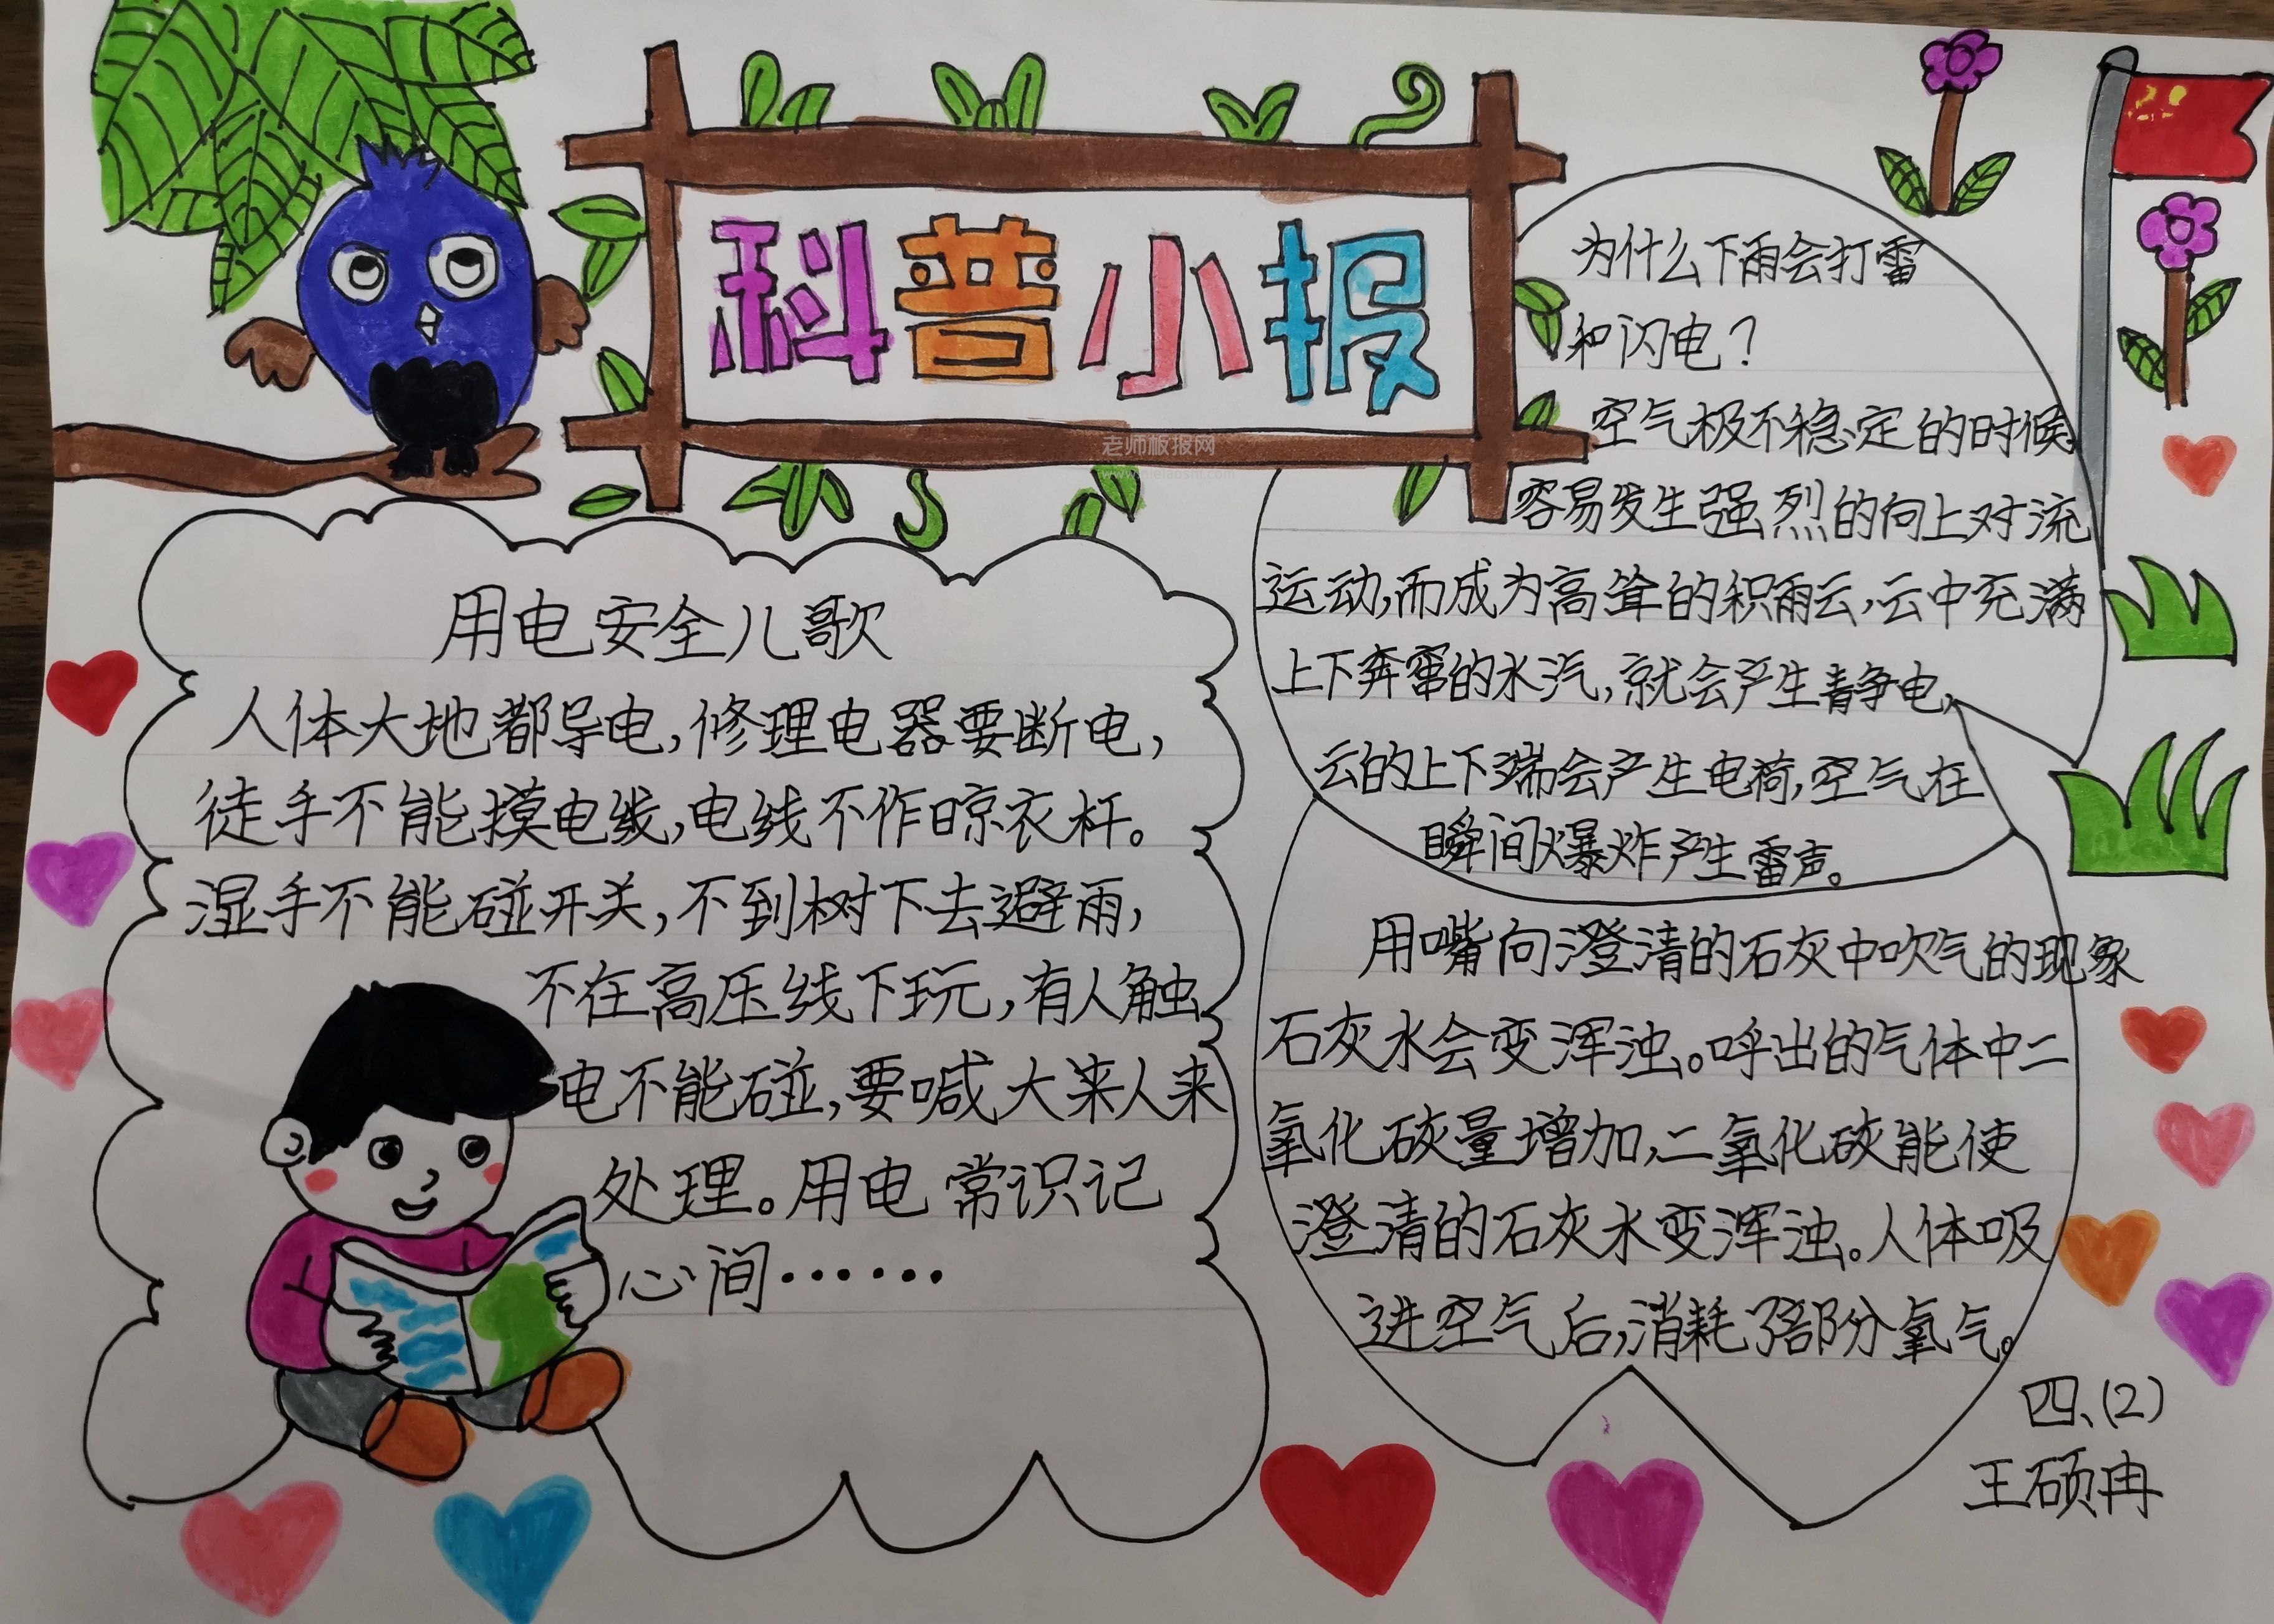 科普小报
老师板报网
用电安全儿歌
人体大地都导电,修理电器要断电,
徒手不能摸电线,电线不作晾衣杆。
湿手不能碰开关,不到树下去避雨,
不在高压线下玩,有人触
电不能碰,要喊大来人来
处理。用电常识记
心间······
为什么下雨会打雷
和闪电?
空气极不稳定的时候
容易发生强烈的向上对流
运动,而成为高耸的积雨云,云中充满
上下奔窜的水汽,就会产生静电,
云的上下端会产生电荷,空气在
瞬间爆炸产生雷声。
用嘴向澄清的石灰中吹气的现象
石灰水会变浑浊。呼出的气体中二
氧化碳量增加,二氧化碳能使
澄清的石灰水变浑浊。人体吸
进空气后,消耗了部分氧气。
四、(2)
王硕冉